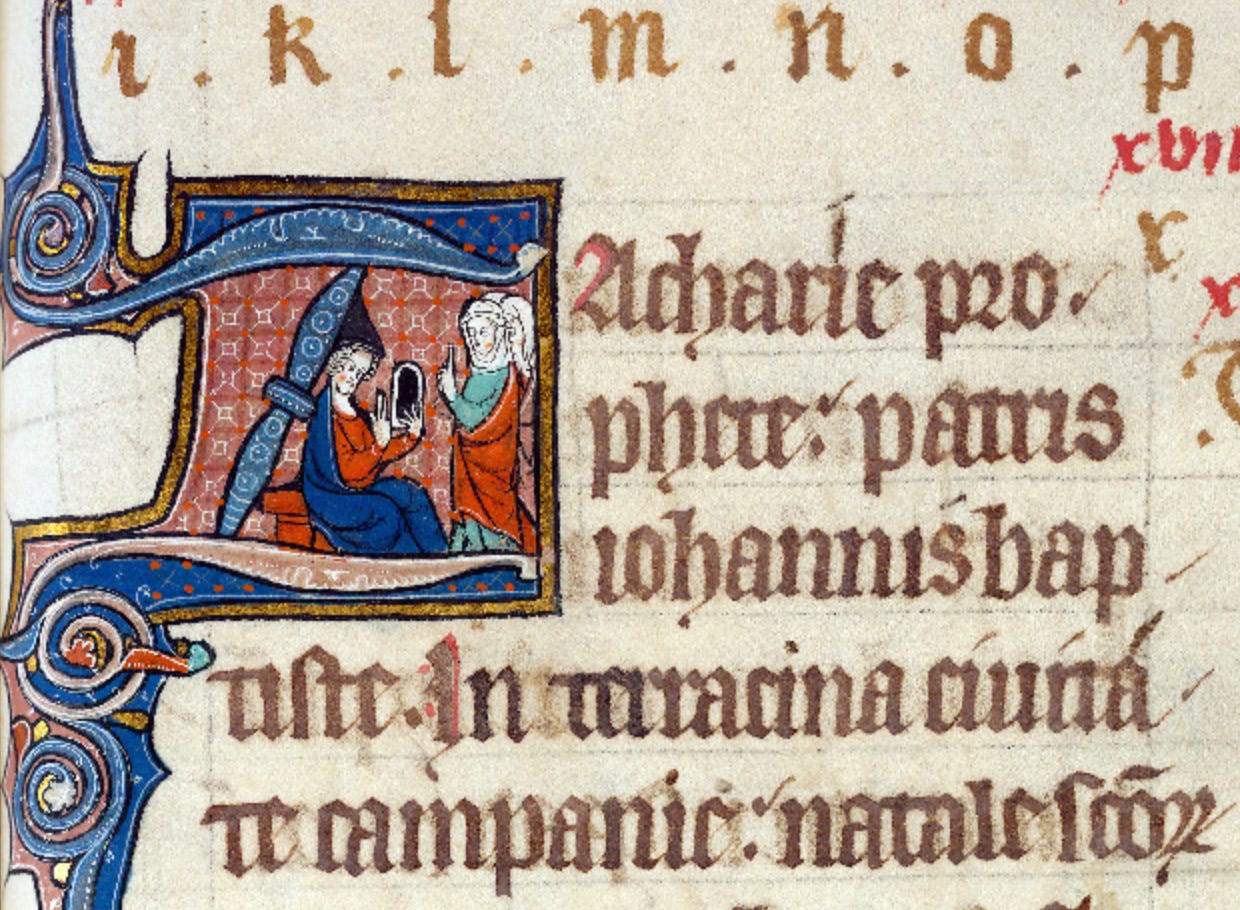 i . k . l . m . n . o . p
xviii
Zacharie pro
x
phete: patris
iohannis bap
tiste. In terracina ciuita
te campanie: natale scōꝝ